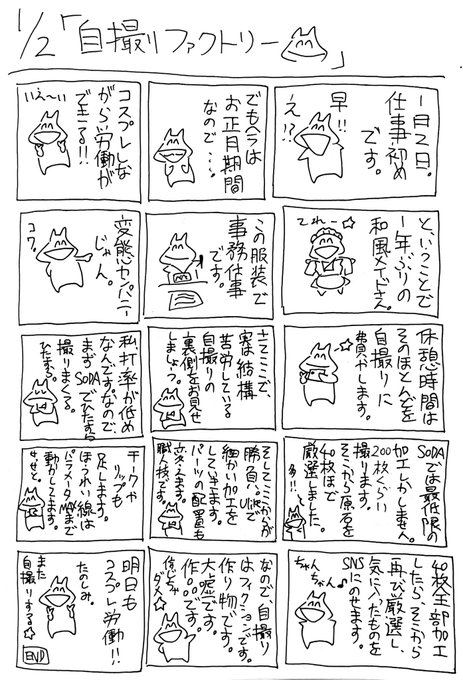 1/2「自撮りファクトリー」
1月2日。
仕事初め
です。
早!!
え!?
でも今は
お正月期間
なので…、
コスプレしな
がら労働が
できる!!
いえ〜い
と、いうことで
1年ぶりの
和風メイドさん。
てれー☆
この服装で
事務仕事
です。
変態カンパニー
じゃん。
コワ。
休憩時間は
そのほとんどを
自撮りに
費やします。
さてここで、
実は結構
苦労している
自撮りの
裏側をお見せ
しましょう。
私、打率が低め
なんですなので、
まずSODAでひたすら
撮りまくる。
ひたすら。
SODAでは最低限の
加工しかしません。
200枚くらい
撮ります。
そこから原石を
40枚ほど
厳選しました。
多!!
そしてここからが
勝負。Ulikeで
細かい加工を
してゆきます。
パーツの配置も
変えます。
職人技です。
チークや
リップも
足します。
ほうれい線は
パラメータMAXまで
動かしてます。
せせと。
40枚全部加工
したら、そこから
再び厳選し、
気に入ったものを
SNSに
のせます。
ちゃん
ちゃん♪
なので、自撮り
はフィクションです。
作り物です。
大嘘です。
作品です。
信じちゃ
ダメ☆
明日も
コスプレ労働!!
たのしみ。
また
自撮りする☆
END